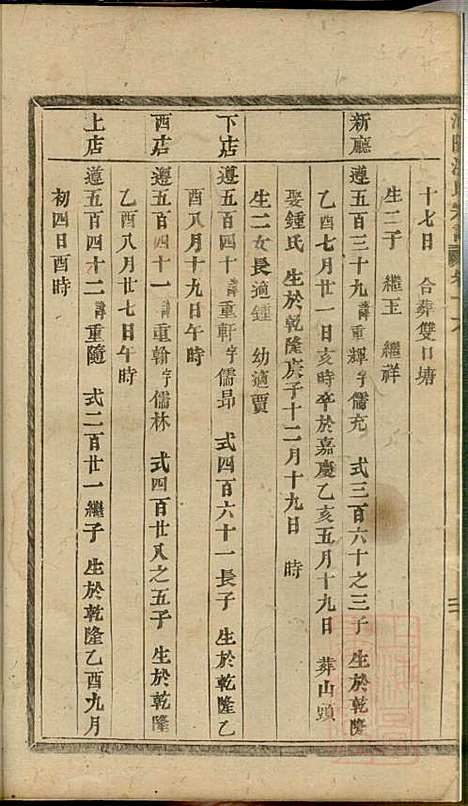 十七日 合葬雙口塘
生二子 繼玉 繼祥
新廳 遵五百三十九諱重輝字儒充 式三百六十之三子 生於乾隆
乙酉七月廿一日亥時卒於嘉慶乙亥五月十九日 葬山頭
娶鍾氏 生於乾隆庚子十二月十九日 時
生二女長適鍾 幼適賈
下店 遵五百四十諱重軒字儒昂 式四百六十一長子 生於乾隆乙
酉八月十九日午時
西店 遵五百四十一諱重翰字儒林 式四百廿八之五子 生於乾隆
乙酉八月廿七日午時
上店 遵五百四十二諱重隨 式二百廿一繼子 生於乾隆乙酉九月
初四日酉時